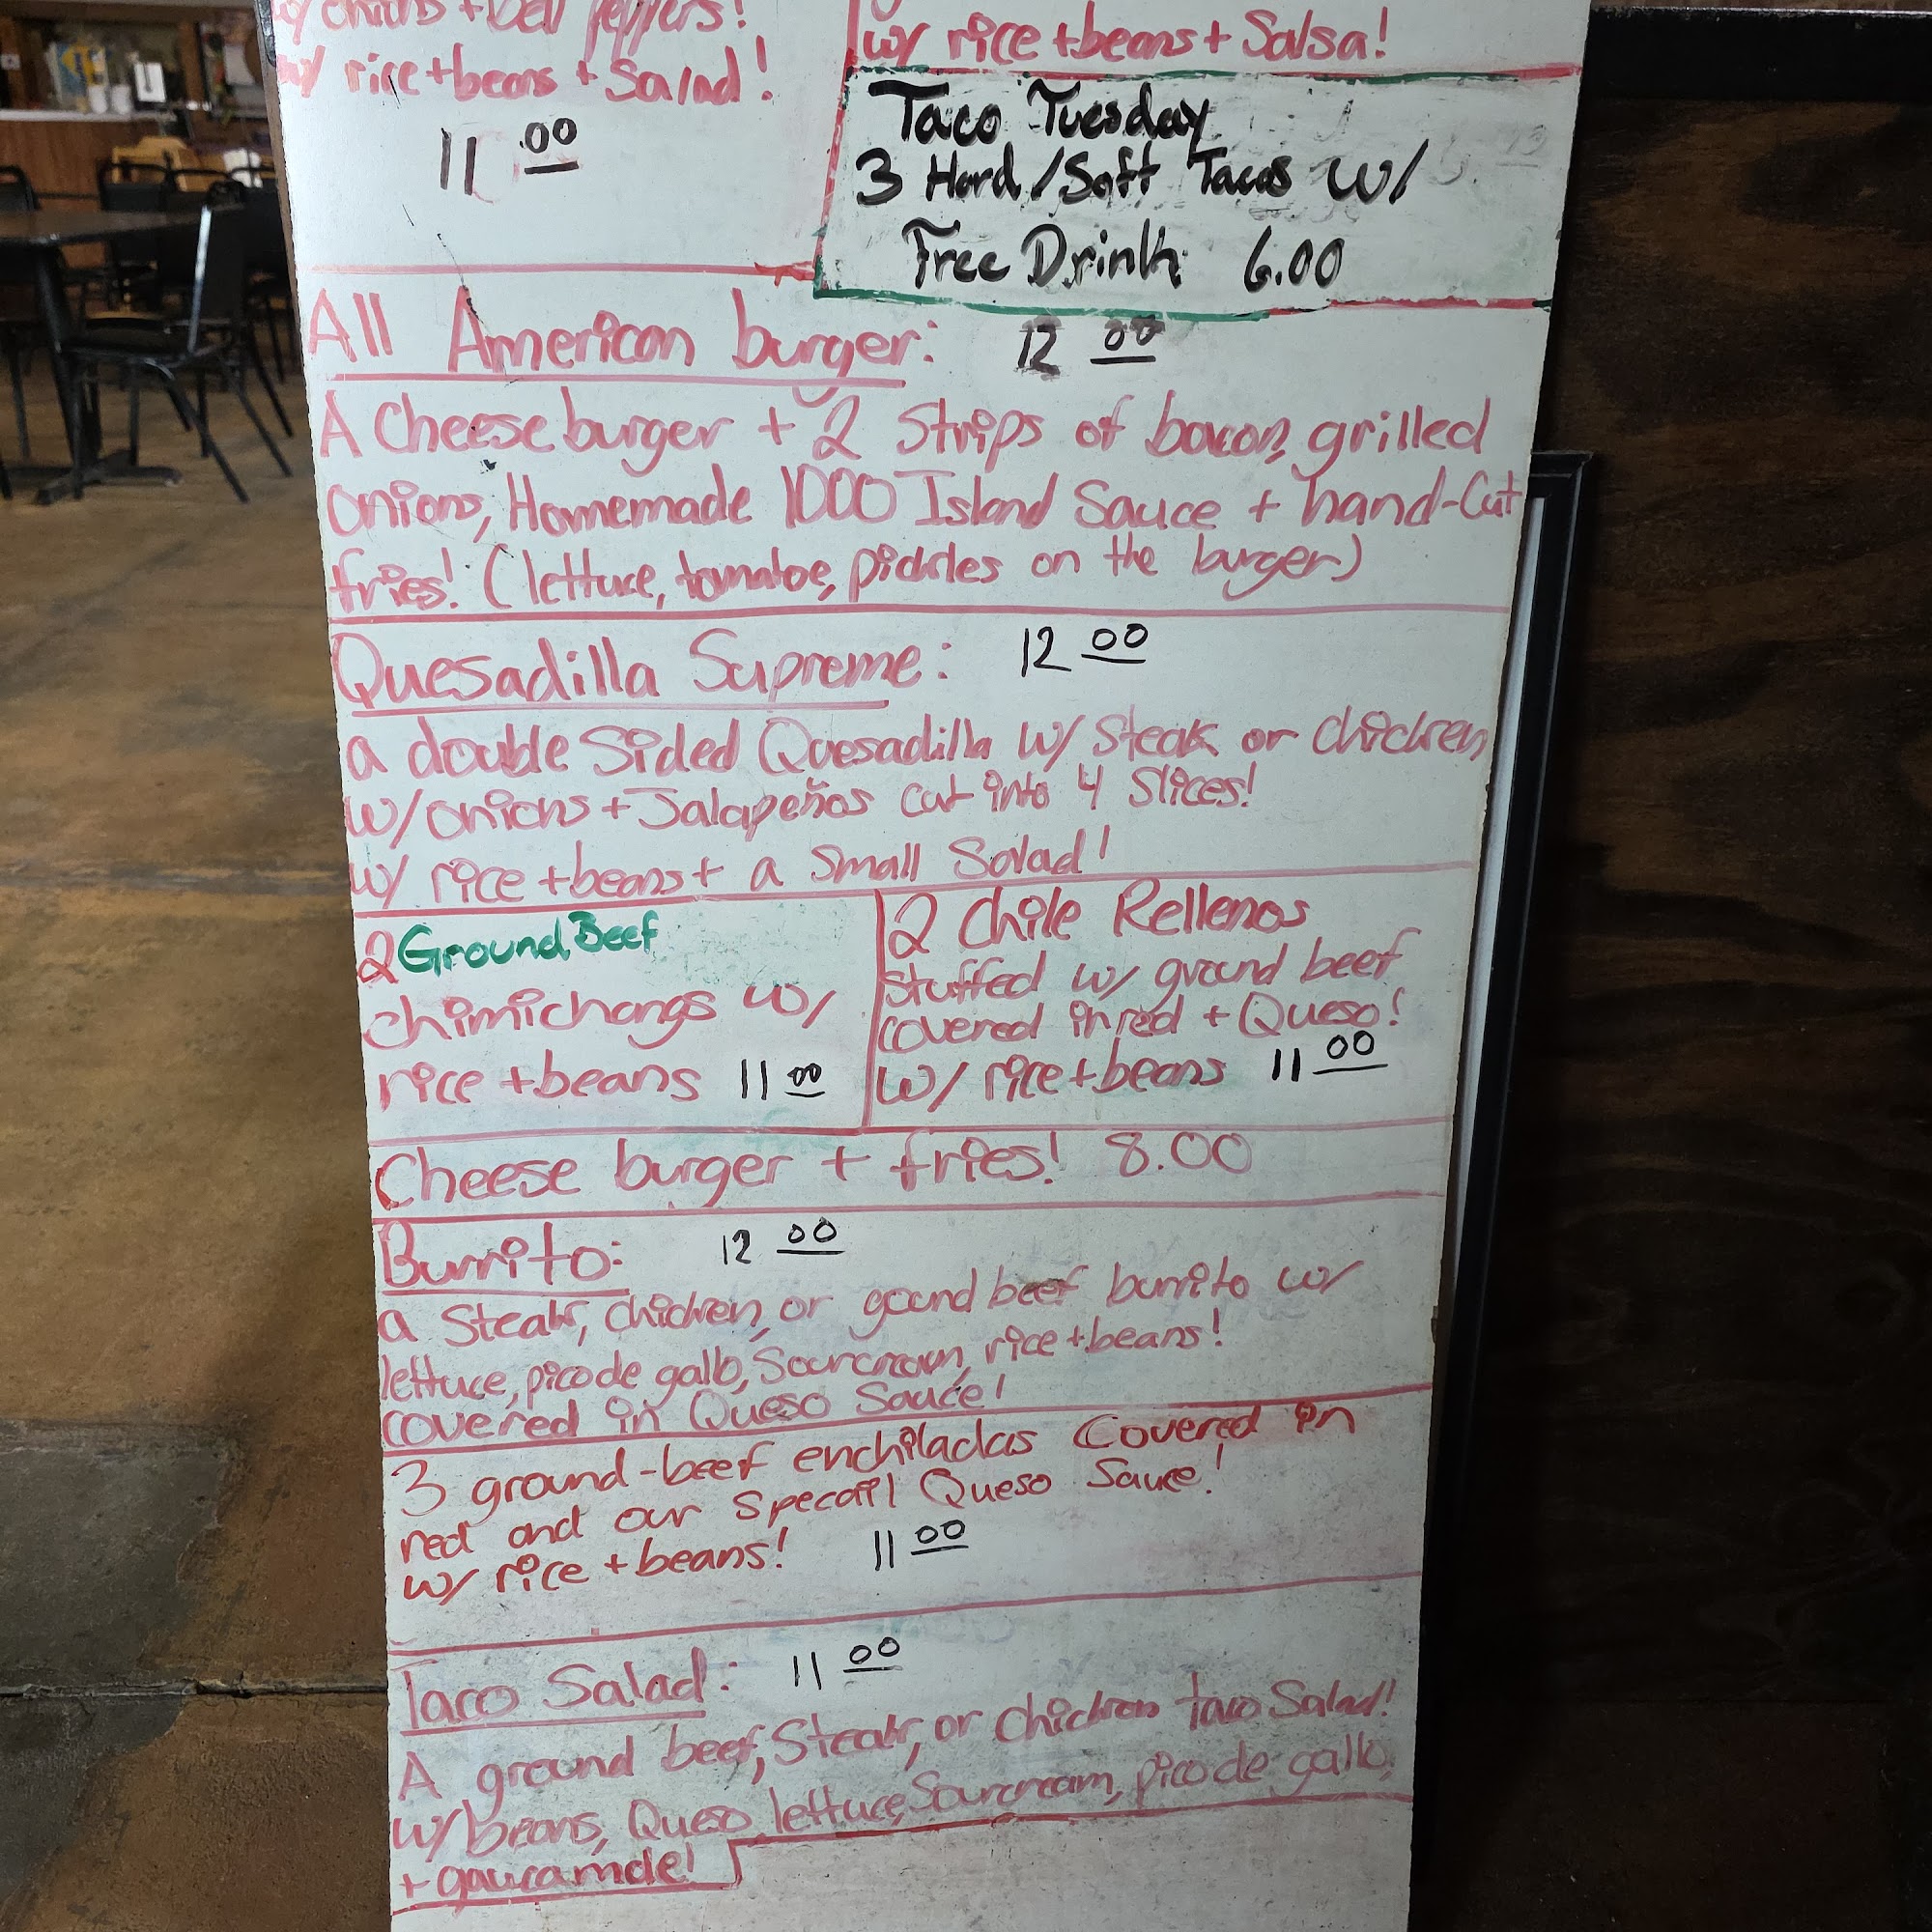 w/ onions + bell peppers!
w/ rice + beans + Salad!
11 00
w/ rice + beans + Salsa!
Taco Tuesday
3 Hard/Soft Tacos w/
Free Drink 6.00
All American burger: 12 00
A Cheese burger + 2 Strips of bacon, grilled
onions, Homemade 1000 Island Sauce + hand-Cut
fries! (lettuce, tomatoe, pickles on the burger)
Quesadilla Supreme: 12 00
a double Sided Quesadilla w/ Steak or chicken,
w/ onions + Jalapeños cut into 4 Slices!
w/ rice + beans + a Small Salad!
2 Ground Beef
chimichangs w/
rice + beans 11 00
2 Chile Rellenos
Stuffed w/ ground beef
covered in red + Queso!
w/ rice + beans 11 00
Cheese burger + fries! 8.00
Burrito: 12 00
a Steak, chicken, or gound beef burrito w/
lettuce, pico de gallo, Sourcream, rice + beans!
covered in Queso Sauce!
3 ground-beef enchiladas Covered in
red and our Specail Queso Sauce!
w/ rice + beans! 11 00
Taco Salad: 11 00
A ground beef, Steak, or chicken taco Salad!
w/ beans, Queso, lettuce, Sourcream, pico de gallo,
+ gaucamole!